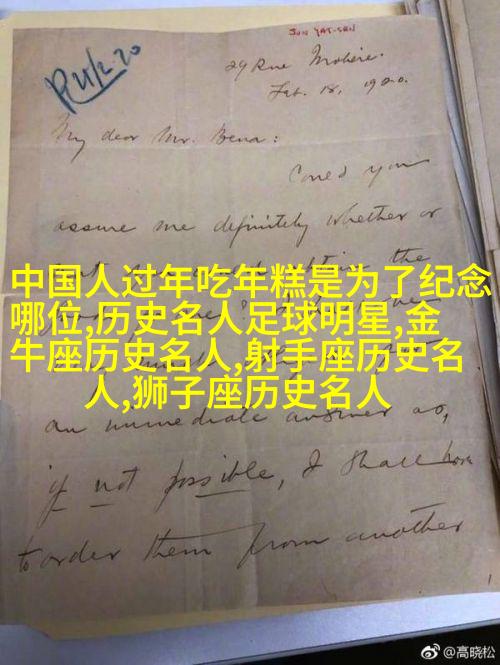 SUN YAT-SEN
R 21/2.20
29 Rue Molière.
Feb. 18, 1920.
My dear Mr. Bena:
Could you
assure me definitely whether or
the
中国人过年吃年糕是为了纪念
哪位,历史名人足球明星,金
牛座历史名人,射手座历史名
人,狮子座历史名人
an immediate answer as,
if not possible, I shall have
to order them from another
@高晓松